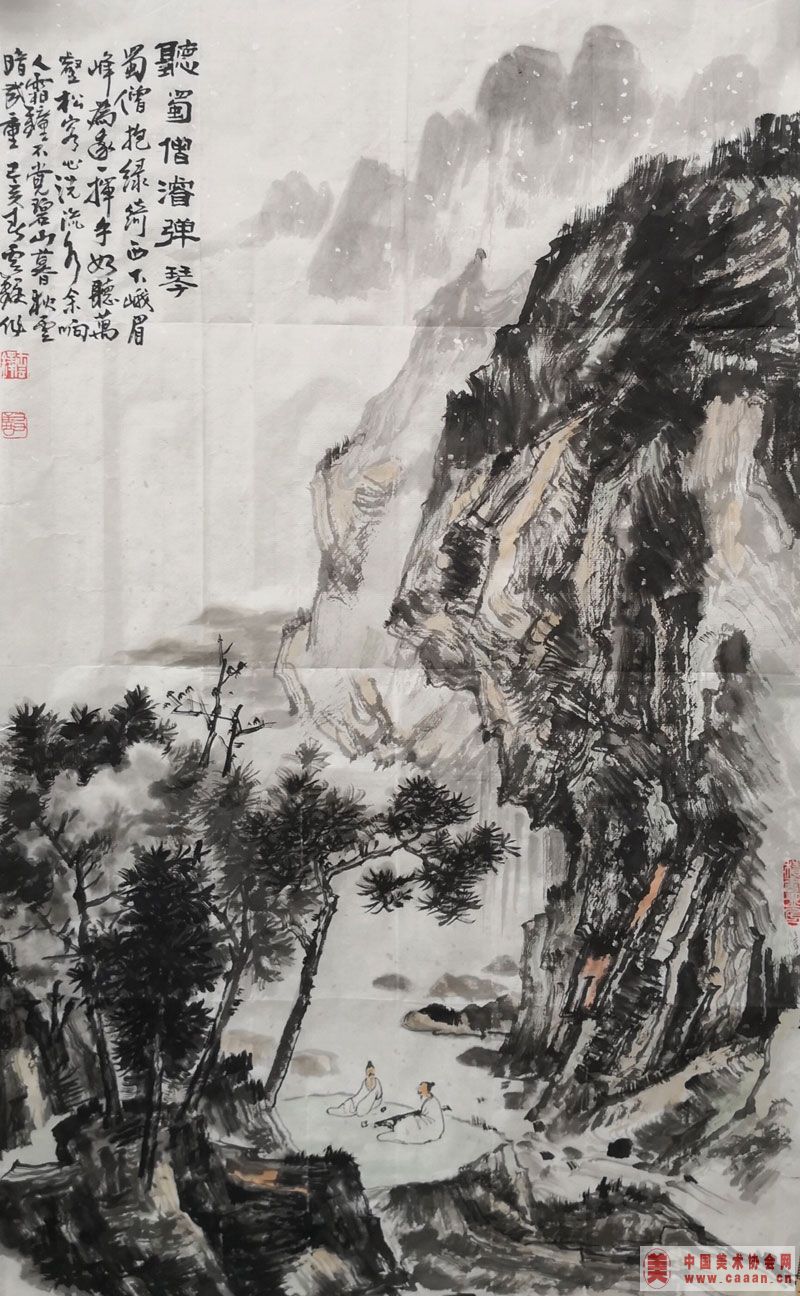 聽蜀僧濬弹琴
蜀僧抱绿绮西下峨眉
峰為我一揮手如聽萬
壑松客心洗流水余响
入霜鐘不觉碧山暮秋雲
暗幾重 己亥春雲作
美 中国美术协会网
www.caaan.cn